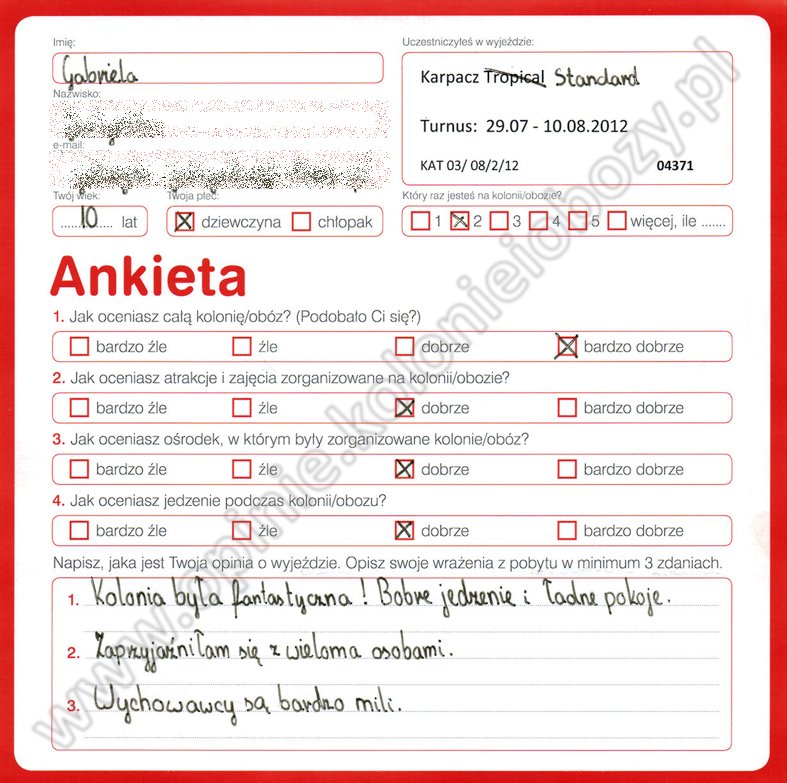 Imię:
Gabriela
Nazwisko:
e-mail:
Twój wiek:
10 lat
Twoja płeć:
dziewczyna chłopak
Uczestniczyłeś w wyjeździe:
Karpacz Tropical Standard
Turnus: 29.07 - 10.08.2012
KAT 03/ 08/2/12 04371
Który raz jesteś na kolonii/obozie?
1 2 3 4 5 więcej, ile .......
Ankieta
1. Jak oceniasz całą kolonię/obóz? (Podobało Ci się?)
bardzo źle źle dobrze bardzo dobrze
2. Jak oceniasz atrakcje i zajęcia zorganizowane na kolonii/obozie?
bardzo źle źle dobrze bardzo dobrze
3. Jak oceniasz ośrodek, w którym były zorganizowane kolonie/obóz?
bardzo źle źle dobrze bardzo dobrze
4. Jak oceniasz jedzenie podczas kolonii/obozu?
bardzo źle źle dobrze bardzo dobrze
Napisz, jaka jest Twoja opinia o wyjeździe. Opisz swoje wrażenia z pobytu w minimum 3 zdaniach.
1. Kolonia była fantastyczna! Dobre jedzenie i ładne pokoje.
2. Zaprzyjaźniłam się z wieloma osobami.
3. Wychowawcy są bardzo mili.
www.opinie.kolonieiobozy.pl